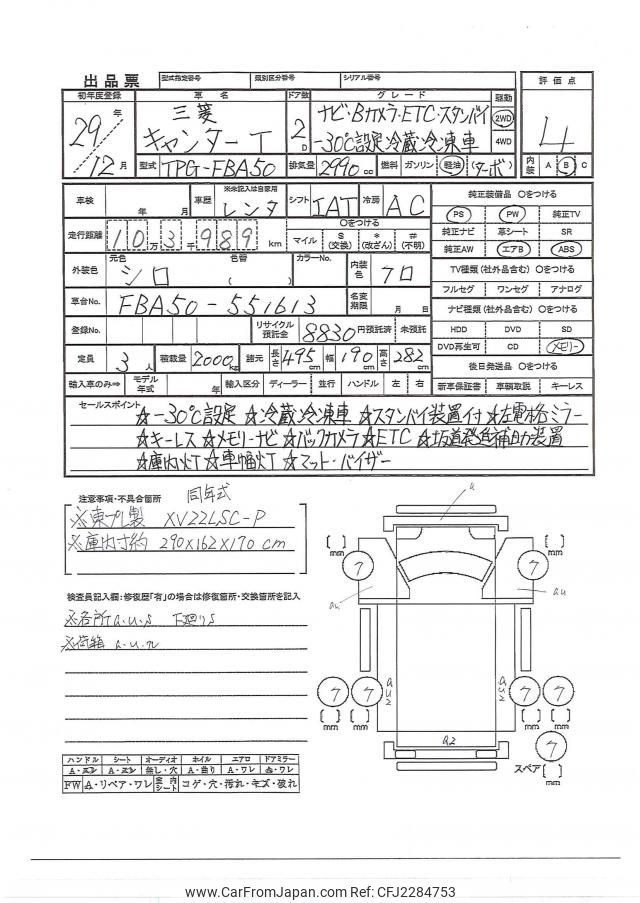 出品票 型式指定番号 類別区分番号 シリアル番号
初年度登録 車名 ドア数 グレード 駆動 評価点
29年 三菱 2D ナビ・Bカメラ・ETC・スタンバイ 2WD 4
12月 キャンターT -30℃設定冷蔵冷凍車 4WD
型式 TPG-FBA50 排気量 2990cc 燃料 ガソリン 軽油 (ターボ) 内装 A B C
車検 年 月 車歴 ※未記入は自家用 レンタ シフト IAT 冷房 AC 純正装備品 ○をつける
走行距離 10万3千989km ○をつける マイル $(交換) *(改ざん) #(不明) PS PW 純正TV
純正ナビ 革シート SR
純正AW エアB ABS
外装色 元色 シロ 色替 ( ) カラーNo. 内装色 クロ TV種類(社外品含む) ○をつける
フルセグ ワンセグ アナログ
車台No. FBA50-551613 名変期限 月 日 ナビ種類(社外品含む) ○をつける
登録No. リサイクル預託金 8830円預託済 未預託 HDD DVD SD
DVD再生可 CD メモリー
定員 3人 積載量 2000kg 諸元 長さ 495cm 幅 190cm 高さ 282cm 後日発送品 ○をつける
輸入車のみ⇒ モデル年式 年 輸入区分 ディーラー 並行 ハンドル 左 右 新車保証書 車輌取説 キーレス
セールスポイント
☆-30℃設定 ☆冷蔵冷凍車 ☆スタンバイ装置付 ☆左電格ミラー
☆キーレス ☆メモリーナビ ☆バックカメラ ☆ETC ☆坂道発進補助装置
☆庫内灯 ☆車幅灯 ☆マット・バイザー
注意事項・不具合箇所 同年式
※東プレ製 XV22LSC-P
※庫内寸約 290×162×170cm
検査員記入欄:修復歴「有」の場合は修復箇所・交換箇所を記入
※各所a.u.s 下廻りs
※荷箱 a.u.n
a
7 7
[ ]mm [ ]mm
au au
7 7 au2 au2 7 7
[ ]mm [ ]mm [ ]mm [ ]mm
a2 7
スペア[ ]mm
ハンドル シート オーディオ ホイル エアロ ドアミラー
A・ズレ A・ズレ 無し・穴 A・曲り A・ワレ A・ワレ
FW A・リペア・ワレ 室内シート コゲ・穴・汚れ・キズ・破れ
www.CarFromJapan.com Ref: CFJ2284753